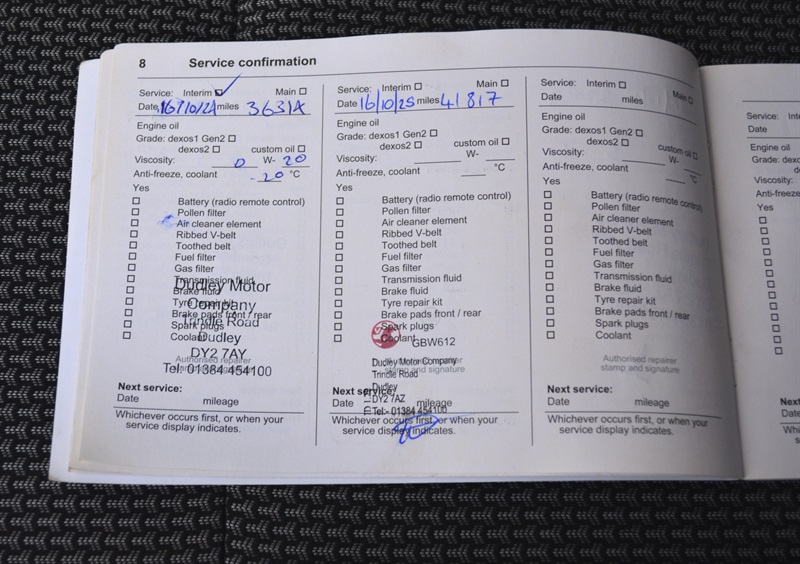 8 Service confirmation
Service: Interim Main
Date 16/10/24 miles 36314
Engine oil
Grade: dexos1 Gen2
dexos2 custom oil
Viscosity: 0 W- 20
Anti-freeze, coolant -20 °C
Yes
Battery (radio remote control)
Pollen filter
Air cleaner element
Ribbed V-belt
Toothed belt
Fuel filter
Gas filter
Transmission fluid
Brake fluid
Tyre repair kit
Brake pads front / rear
Spark plugs
Coolant
Dudley Motor
Company
Trindle Road
Dudley
DY2 7AY
Tel: 01384 454100
Authorised repairer
stamp and signature
Next service:
Date mileage
Whichever occurs first, or when your
service display indicates.
Service: Interim Main
Date 16/10/25 miles 41817
Engine oil
Grade: dexos1 Gen2
dexos2 custom oil
Viscosity: W-
Anti-freeze, coolant °C
Yes
Battery (radio remote control)
Pollen filter
Air cleaner element
Ribbed V-belt
Toothed belt
Fuel filter
Gas filter
Transmission fluid
Brake fluid
Tyre repair kit
Brake pads front / rear
Spark plugs
Coolant
GBW612
Dudley Motor Company
Trindle Road
Dudley
DY2 7AZ
Tel:- 01384 454100
stamp and signature
Next service:
Date mileage
Whichever occurs first, or when your
service display indicates.
Service: Interim Main
Date miles
Engine oil
Grade: dexos1 Gen2
dexos2 custom oil
Viscosity: W-
Anti-freeze, coolant °C
Yes
Battery (radio remote control)
Pollen filter
Air cleaner element
Ribbed V-belt
Toothed belt
Fuel filter
Gas filter
Transmission fluid
Brake fluid
Tyre repair kit
Brake pads front / rear
Spark plugs
Coolant
Authorised repairer
stamp and signature
Next service:
Date mileage
Whichever occurs first, or when your
service display indicates.
Service:
Date
Engine oil
Grade:
Viscosity:
Yes